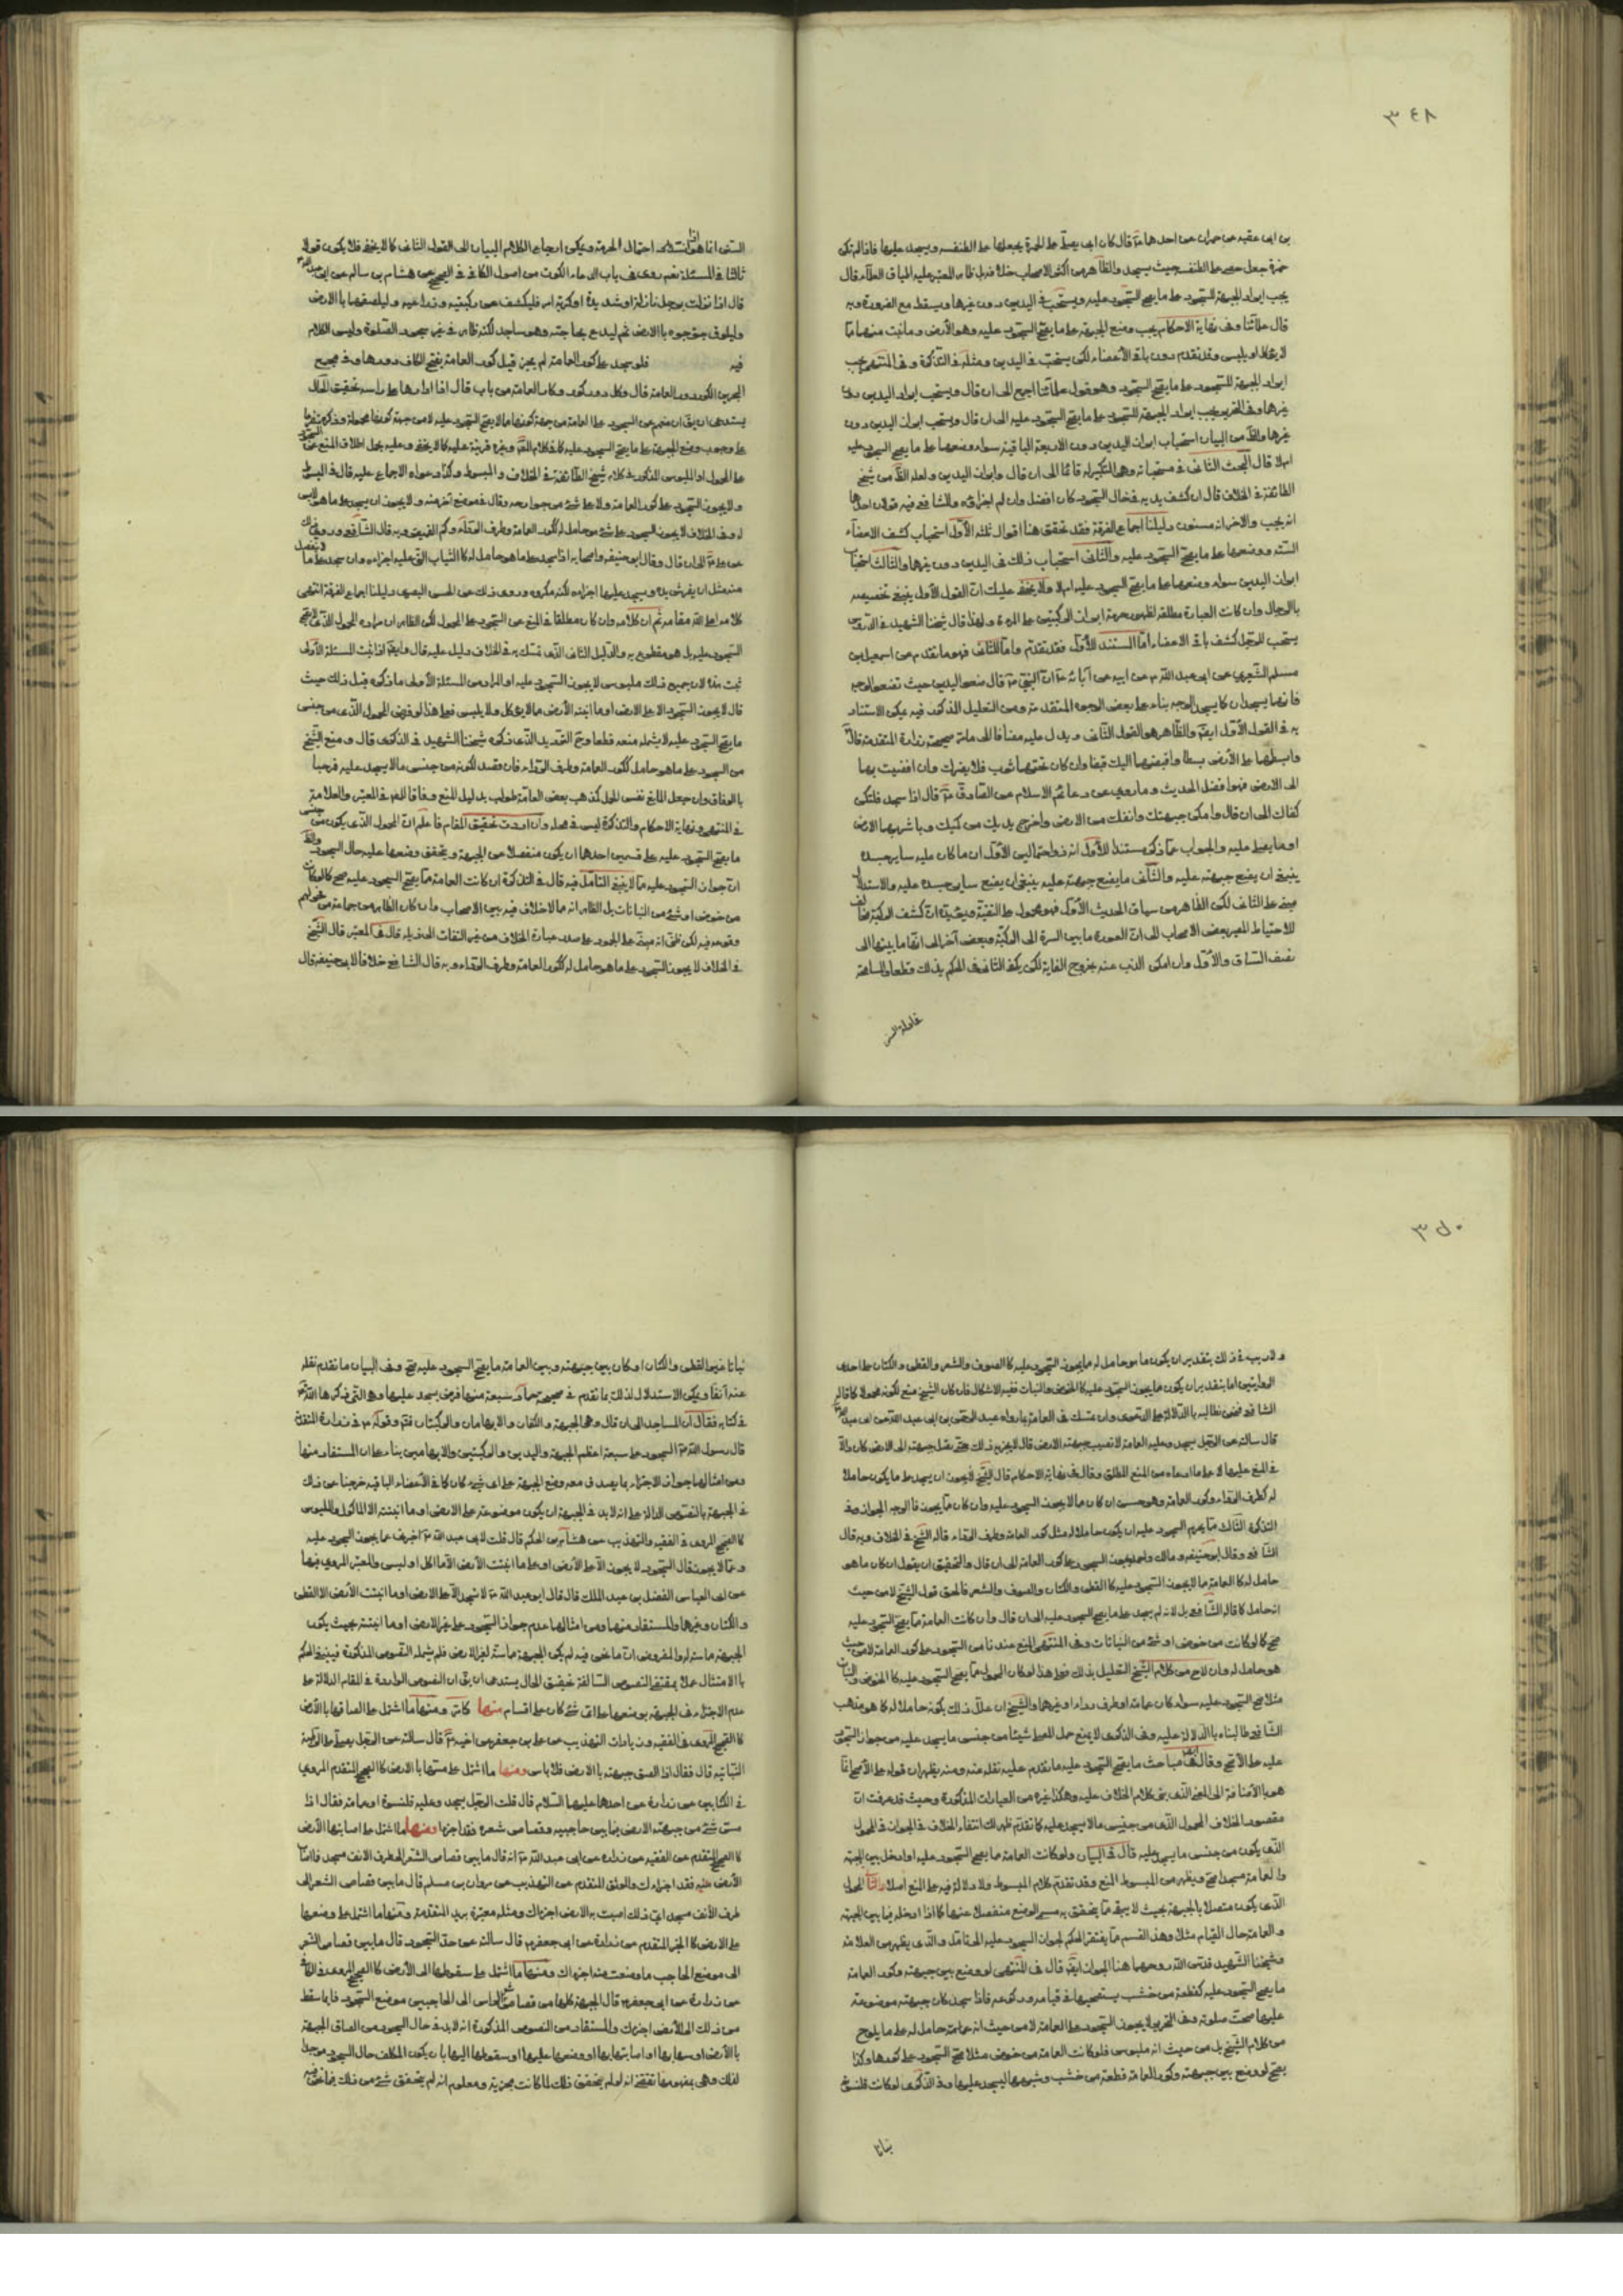 ٣٤٨
بن ابى عقبه عن حمران عن احدهما ع قال كان ابى يصلى على الخمرة يجعلها على الطنفسه ويسجد عليها فاذا لم تكن
خمرة جعل حصى على الطنفسه حيث يسجد والظاهر من اكثر الاصحاب خلافه بل ظاهر المعتبر عليه اطباق العلماء قال
يجب ابراز الجبهة للسجود على ما يصح السجود عليه ويستحب فى اليدين دون غيرها ويسقط مع الضرورة وبه
قال علمائنا وفى نهاية الاحكام يجب وضع الجبهة على ما يصح السجود عليه وهو الأرض وما نبت منها مما
لا يؤكل او يلبس وقد تقدم دون باقى الأعضاء لكن يستحب فى اليدين ومثله فى التذكرة وفى المنتهى يجب
ابراز الجبهة للسجود على ما يصح السجود وهو قول علمائنا اجمع الى ان قال ويستحب ابراز اليدين دون
غيرها وفى التحرير يجب ابراز الجبهة للسجود على ما يصح السجود عليه الى ان قال ويستحب ابراز اليدين دون
غيرها والظ من البيان استحباب ابراز اليدين دون الاربعة الباقية سواء وضعها على ما يصح السجود عليه
ام لا قال البحث الثانى فى مستحباته وهى التكبير له قائما الى ان قال وابراز اليدين ولعله الظ من شيخ
الطائفة فى الخلاف قال ان كشف يديه فى حال السجود كان افضل وان لم اجزائه وللشافعى فيه قولان احدهما
انه يجب والاخر انه مسنون دليلنا اجماع الفرقة فقد تحقق هنا اقوال ثلثه الأول استحباب كشف الاعضاء
الستة ووضعها على ما يصح السجود عليه والثانى استحباب ذلك فى اليدين دون غيرها والثالث استحباب
ابراز اليدين سواء وضعها على ما يصح السجود عليه ام لا ولا يخفى عليك ان القول الأول ينبغى تخصيصه
بالرجال وان كانت العبارة مطلقه لظهور حرمة ابراز الركبتين على المرءة ولهذا قال شيخنا الشهيد فى الدروس
يستحب للرجل كشف باقى الاعضاء اما المستند للأول فقد تقدم واما للثانى فهو ما تقدم من اسمعيل بن
مسلم الشعيرى عن ابى عبد الله ع عن ابيه عن آبائه ع ان النبى ص قال ضعوا اليدين حيث تضعوا الوجه
فانهما يسجدان كما يسجد الوجه بناء على بعض الوجوه المتقدمة ومن التعليل المذكور فيه يمكن الاستناد
به فى القول الأول ايضا والظاهر هو القول الثانى ويدل عليه مضافا الى ما مر صحيحة زرارة المتقدمة قال
وابسطهما على الأرض بسطا واقبضهما اليك قبضا وان كان تحتهما ثوب فلا يضرك وان افضيت بهما
الى الارض فهو افضل الحديث وما روى عن دعائم الاسلام عن الصادق ع قال اذا سجد فلتكن
كفاك الى ان قال وامكن جبهتك وانفك من الارض واخرج يديك من كميك وباشر بهما الارض
او ما يصلى عليه والجواب عما ذكر مستندا للأول انه ذو احتمالين الأول ان ما كان عليه ساير جسده
ينبغى ان يضع جبهته عليه والثانى ما يضع جبهته عليه ينبغى ان يضع ساير جسده عليه والاستدلال
مبنى على الثانى لكن الظاهر من سياق الحديث الأول فهو محمول على التقية ويؤيده ان كشف الركبة مخالف
للاحتياط لمصير بعض الاصحاب الى ان العورة ما بين السرة الى الركبة وبعض آخر الى انها ما بينها الى
نصف الساق والأول وان امكن الذب عنه بخروج الغاية لكن يكفى الثانى فى الحكم بذلك قطعا والمسامحة
فى ادلة السنن
السنن انما هو اذا انتفى احتمال الحرمة ويمكن ارجاع الكلام البيان الى القول الثانى كما لا يخفى فلا يكون قولا
ثالثا فى المسئلة نعم روى فى باب الدعاء للكرب من اصول الكافى فى الصحيح عن هشام بن سالم عن ابى عبد الله ع
قال اذا نزلت برجل نازلة او شديدة او كربة امر فليكشف عن ركبتيه وذراعيه وليلصقهما بالارض
وليلزق جؤجؤه بالارض ثم ليدع بحاجته وهو ساجد لكنه ظاهر فى غير سجود الصلوة وليس الكلام
فيه فلو سجد على كور العامة لم يجز قيل كور العامة بفتح الكاف دورها وفى مجمع
البحرين الكور دور العامة قال وكل دور كور وكار العامة من باب قال اذا ادارها على راسه تحقيق الحال
يستدعى ان يق ان منعهم عن السجود على العامة من جهة كونها مما لا يصح السجود عليه لا من جهة كونها محمولة وذكره متفرعا
على وجوب وضع الجبهة على ما يصح السجود عليه كما فى كلام المص وغيره قرينة عليه كما لا يخفى وعليه يحمل اطلاق المنع عن السجود
على المحمول او الملبوس المذكور فى كلام شيخ الطائفة فى الخلاف والمبسوط وكذا دعواه الاجماع عليه قال فى المبسوط
ولا يجوز السجود على كور العامة ولا على شئ من جوارحه وقال فى موضع آخر منه ولا يجوز ان يسجد على ما هو لابس
له وفى الخلاف لا يجوز السجود على شئ هو حامل له ككور العامة وطرف الرداء وكم القميص وبه قال الشافعى وروى ذلك
عن على ع الى ان قال وقال ابو حنيفه واصحابه اذا سجد على ما هو حامل له كالثياب التى عليه اجزاءه وان سجد على ما ينفصل
منه مثل ان يفرش يده ويسجد عليها اجزاءه لكنه مكروه وروى ذلك عن الحسن البصرى دليلنا اجماع الفرقة انتهى
كلامه اعلى الله مقامه ثم ان كلامه وان كان مطلقا فى المنع عن السجود على المحمول لكن الظاهر ان مراده المحمول الذى لا يصح
السجود عليه بل هو مقطوع به والدليل الثانى الذى تمسك به فى الخلاف دليل عليه قال وايضا اذا ثبت المسئلة الأولى
ثبت هذا لان جميع ذلك ملبوس لا يجوز السجود عليه او المراد من المسئلة الأولى ما ذكره قبل ذلك حيث
قال لا يجوز السجود الا على الارض او ما انبته الأرض مما لا يؤكل ولا يلبس فعلى هذا لو فرض المحمول الذى من جنس
ما يصح السجود عليه لا يشمله منعه قطعا وح الترديد الذى ذكره شيخنا الشهيد فى الذكرى قال ومنع الشيخ
من السجود على ما هو حامل ككور العامة وطرف الرداء فان قصد لكونه من جنس ما لا يسجد عليه فمرحبا
بالوفاق وان جعل المانع نفس الحمل كمذهب بعض العامة طولب بدليل المنع وفاقا للمص فى المعتبر والعلامة
فى المنتهى ونهاية الاحكام والتذكرة ليس فى محله وان اردت تحقيق المقام فاعلم ان المحمول الذى يكون من جنس
ما يصح السجود عليه على قسمين احدهما ان يكون منفصلا عن الجبهة ويتحقق وضعها عليه حال السجود والظ
ان جواز السجود عليه مما لا ينبغى التامل فيه قال فى التذكرة ان كانت العامة مما يصح السجود عليه صح كما لو كانت
من خوص او شئ من النباتات بل الظاهر انه مما لا خلاف فيه بين الاصحاب وان كان الظاهر من جماعة من فحولهم
وقوعه فيه لكن ظنى انه مبنى على الجمود على صدر عبارة الخلاف من غير التفات الى ذيله قال فى المعتبر قال الشيخ
فى الخلاف لا يجوز السجود على ما هو حامل له ككور العامة وطرف الرداء وبه قال الشافعى خلافا لابى حنيفة قال
٣٥٠
ولا ريب فى ذلك بتقدير ان يكون ما هو حامل له مما لا يجوز السجود عليه كالصوف والشعر والقطن والكتان على احدى
الروايتين اما بتقدير ان يكون مما يجوز السجود عليه كالخوص والنبات ففيه الاشكال فان كان الشيخ منع لكونه محمولا كما قاله
الشافعى فنحن نطالبه بالدلالة على الدعوى وان تمسك فى العامة بما رواه عبد الرحمن بن ابى عبد الله عن ابى عبد الله ع
قال سالته عن الرجل يسجد وعليه العامة لا تصيب جبهته الارض قال لا يجزيه ذلك حتى تصل جبهته الى الارض كان دالا
فى المنع عليها لا على ما ادعاه من المنع المطلق وقال فى نهاية الاحكام قال الشيخ لا يجوز ان يسجد على ما يكون حاملا
له كطرف الرداء وكور العامة وهو حسن ان كان مما لا يجوز السجود عليه وان كان مما يجوز فالوجه الجواز وفى
التذكرة الثالث مما يحرم السجود عليه ان يكون حاملا له مثل كور العامة وطرف الرداء قاله الشيخ فى الخلاف وبه قال
الشافعى وقال ابو حنيفه ومالك واحمد يجوز السجود على كور العامة الى ان قال والتحقيق ان يقول ان كان ما هو
حامل له كالعامة مما لا يجوز السجود عليه كالقطن والكتان والصوف والشعر فالحق قول الشيخ لا من حيث
انه حامل كما قاله الشافعى بل لانه لم يسجد على ما يصح السجود عليه الى ان قال وان كانت العامة مما يصح السجود عليه
صح كما لو كانت من خوص او شئ من النباتات وفى المنتهى المنع عندنا من السجود على كور العامة لا من حيث
هو حامل له وان لاح من كلام الشيخ التعليل بذلك فعلى هذا لو كان المحمول مما يصح السجود عليه كالخوص والنبات
مثلا صح السجود عليه سواء كان عمامة او طرف رداء او غيرهما والشيخ ان علل ذلك بكونه حاملا له كما هو مذهب
الشافعى طالبناه بالدلالة عليه وفى الذكرى لا يمنع حمل المصلى شيئا من جنس ما يسجد عليه من جواز السجود
عليه على الأصح وقال ايضا فى مباحث ما يصح السجود عليه ما تقدم عليه نقله عنه ومنه يظهر ان قوله على الأصح انما
هو بالأضافة الى المعنى الذى بنى كلام الخلاف عليه وهكذا غيره من العبارات المذكورة وحيث قد عرفت ان
مقصود الخلاف المحمول الذى من جنس ما لا يسجد عليه كما تقدم ظهر لك انتفاء الخلاف فى الجواز فى المحمول
الذى يكون من جنس ما يسجد عليه قال فى البيان ولو كانت العامة مما يصح السجود عليه او ادخل بين الجبهة
والعامة مسجدا صح ويظهر من المبسوط المنع وقد تقدم كلام المبسوط ولا دلالة فيه على المنع اصلا وثانيا المحمول
الذى يكون متصلا بالجبهة بحيث لا يبقى ما يتحقق به مسمى الوضع منفصلا عنها كما اذا ادخله فيما بين الجبهة
والعامة حال القيام مثلا وهذا القسم مما يفتقر الحكم لجواز السجود عليه الى تامل والذى يظهر من العلامة
وشيخنا الشهيد قدس الله روحهما هنا الجواز ايضا قال فى المنتهى لو وضع بين جبهته وكور العامة
ما يصح السجود عليه كقطعة من خشب يستصحبها فى قيامه وركوعه فاذا سجد كان جبهته موضوعة
عليها صحت صلوته وفى التحرير لا يجوز السجود على العامة لا من حيث انه عامة حامل له على ما يلوح
من كلام الشيخ بل من حيث انه ملبوس فلو كانت العامة من خوص مثلا صح السجود على كورها وكذا
يصح لو وضع بين جبهته وكور العامة قطعة من خشب وشبهها ليسجد عليها وفى الذكرى لو كانت قلنسوة
نباتا
نباتا غير القطن والكتان او كان بين جبهته وبين العامة ما يصح السجود عليه صح وفى البيان ما تقدم نقله
عنه آنفا ويمكن الاستدلال لذلك بما تقدم فى صحيحة حماد وسبعة منها فرض يسجد عليها وهى التى ذكرها الله تع
فى كتابه فقال ان المساجد الى ان قال وهى الجبهة والكفان والابهامان والركبتان فقم وقوله ع فى زرارة المتقدمة
قال رسول الله ص السجود على سبعة اعظم الجبهة واليدين والركبتين والابهامين بناء على ان المستفاد منها
ومن امثالها جواز الاجتزاء بما يصدق معه وضع الجبهة على اى شئ كان كما فى الأعضاء الباقية خرجنا عن ذلك
فى الجبهة بالنصوص الدالة على انه لابد فى الجبهة ان يكون موضوعة على الارض او ما انبتته الا الماكول والملبوس
كالصحيح المروى فى الفقيه والتهذيب عن هشام بن الحكم قال قلت لابى عبد الله ع اخبرنى عما يجوز السجود عليه
وعما لا يجوز قال السجود لا يجوز الا على الأرض او على ما انبتت الأرض الا ما اكل او لبس والمعتبر المروى فيها
عن ابى العباس الفضل بن عبد الملك قال قال ابو عبد الله ع لا تسجد الا على الارض او ما انبتت الأرض الا القطن
والكتان وغيرها والمستفاد منها ومن امثالها عدم جواز السجود على غير الارض او ما انبتته بحيث يكون
الجبهة ماسته له والمفروض ان ما نحن فيه لم يكن الجبهة ماسة لغير الارض فلم يشمله النصوص المذكورة فينبغى الحكم
بالامتثال عملا بمقتضى النصوص السالفة تحقيق الحال يستدعى ان يق ان النصوص الواردة فى المقام الدلالة على
عدم الاجتزاء فى الجبهة بوضعها على اى شئ كان على اقسام منها كما مر ومنها ما اشتمل على الصاقها بالأرض
كالصحيح المروى فى الفقيه وزيادات التهذيب عن على بن جعفر عن اخيه ع قال سالته عن الرجل يصلى على الرطبة
النباتيه قال فقال اذا الصق جبهته بالارض فلا باس ومنها ما اشتمل على مستها بالارض كالصحيح المتقدم المروى
فى الكتابين عن زرارة عن احدهما عليهما السلام قال قلت الرجل يسجد وعليه قلنسوة او عمامة فقال اذا
مس شئ من جبهته الارض فيما بين حاجبيه وقصاص شعره فقد اجزاء ومنها ما اشتمل على اصابتها الأرض
كالصحيح المتقدم عن الفقيه عن زرارة عن ابى عبد الله ع انه قال ما بين قصاص الشعر الى طرف الانف مسجد فما اصاب
الأرض منه فقد اجزاءك والموثق المتقدم عن التهذيب عن مروان بن مسلم قال ما بين قصاص الشعر الى
طرف الأنف مسجد اى ذلك اصبت به الارض اجزاك ومثله معتبرة بريد المتقدمة ومنها ما اشتمل على وضعها
على الارض كالخبر المتقدم عن زرارة عن ابى جعفر ع قال سالته عن حد السجود قال ما بين قصاص الشعر
الى موضع الحاجب ما وضعت منه اجزاك ومنها ما اشتمل على سقوطها الى الأرض كالصحيح المروى فى الكافى
عن زرارة عن ابى جعفر ع قال الجبهة كلها من قصاص شعر الراس الى الحاجبين موضع السجود فايما سقط
من ذلك الى الأرض اجزءك والمستفاد من النصوص المذكورة انه لابد فى حال السجود من الصاق الجبهة
بالأرض او مسها بها او اصابتها بها او وضعها عليها او سقوطها اليها بان يكون المكلف حال السجود موجدا
لذلك وهى بمفهومها تقتضى انه لو لم يتحقق ذلك لما كانت مجزية ومعلوم انه لم يتحقق شئ من ذلك فيما نحن فيه